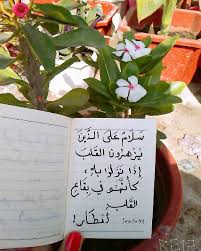 سَلامٌ عَلى الذِّينَ
يُزهِرُونَ القَلب
إِذا نَزلُوا بِهِ ،
كأنَّهُم في بِقَاعِ
القَلبِ
أمطَار!